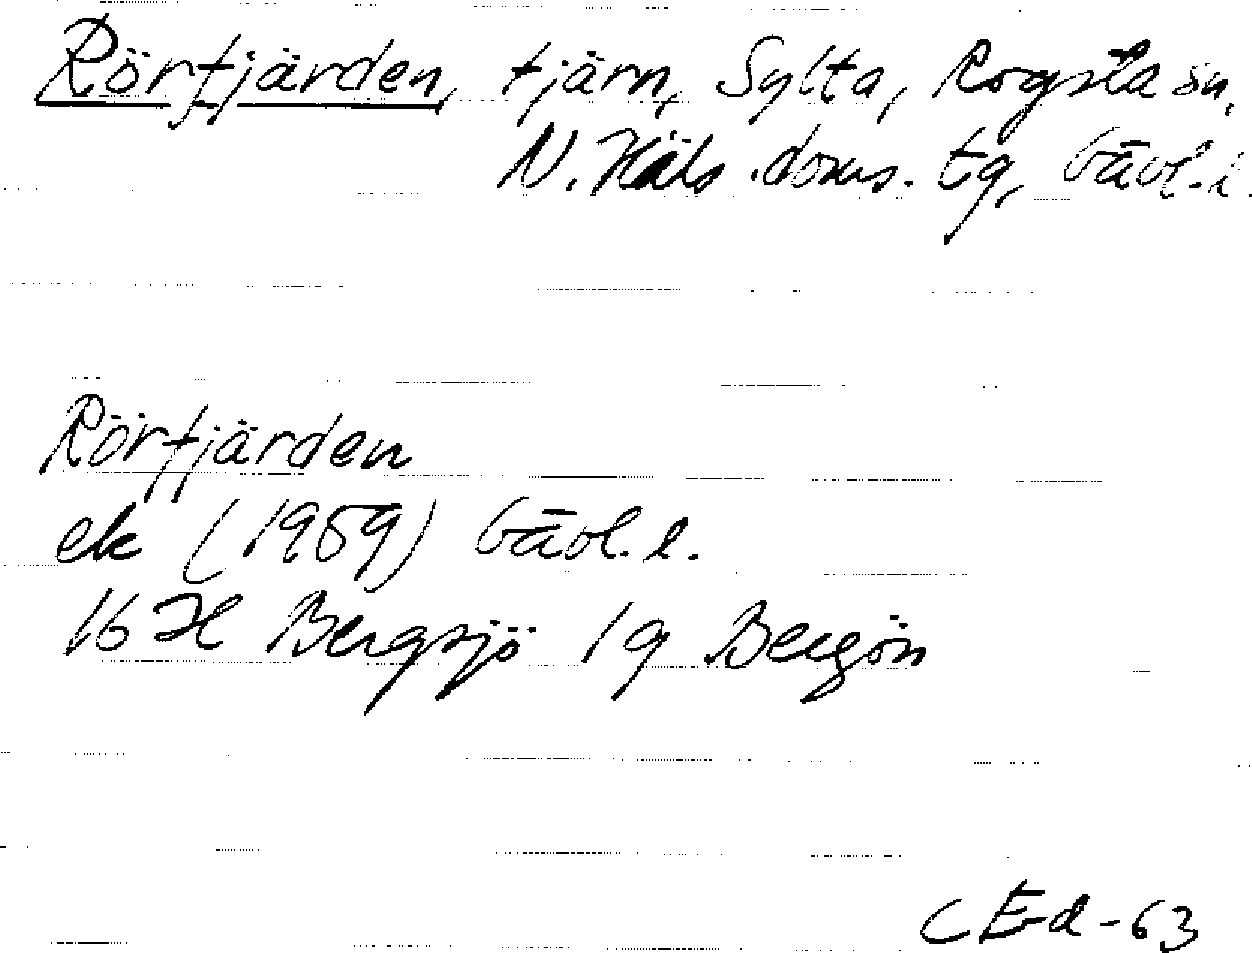 Rörfjärden, tjärn, Sylta, Rogsta sn,
N. Häls. doms. tg, Gävl. l.
Rörfjärden
ek (1959) Gävl. l.
16 H Bergsjö 1 g Bergön
C Ed-63